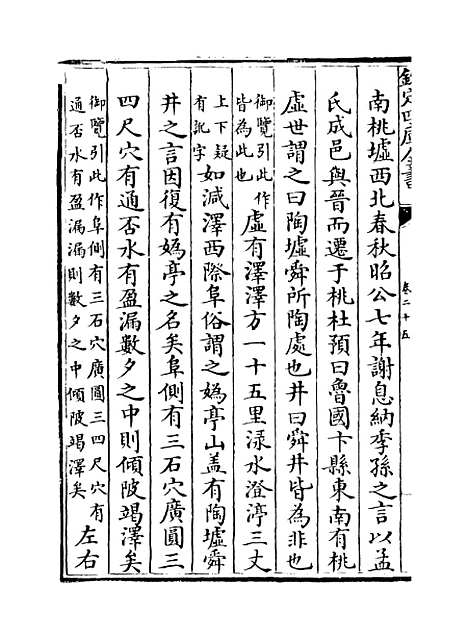 欽定四庫全書
卷二十五
南桃墟西北春秋昭公七年謝息納季孫之言以孟
氏成邑與晉而遷于桃杜預曰魯國卞縣東南有桃
虛世謂之曰陶墟舜所陶處也井曰舜井皆為非也
御覽引此作
皆為此也
虛有澤澤方一十五里渌水澄渟三丈
上下疑
有訛字
如減澤西際阜俗謂之媯亭山盖有陶墟舜
井之言因復有媯亭之名矣阜側有三石穴廣圓三
四尺穴有通否水有盈漏漏數夕之中則傾陂竭澤矣
御覽引此作阜側有三石穴廣圓三四尺穴有
通否水有盈漏漏則數夕之中傾陂竭澤矣
左右